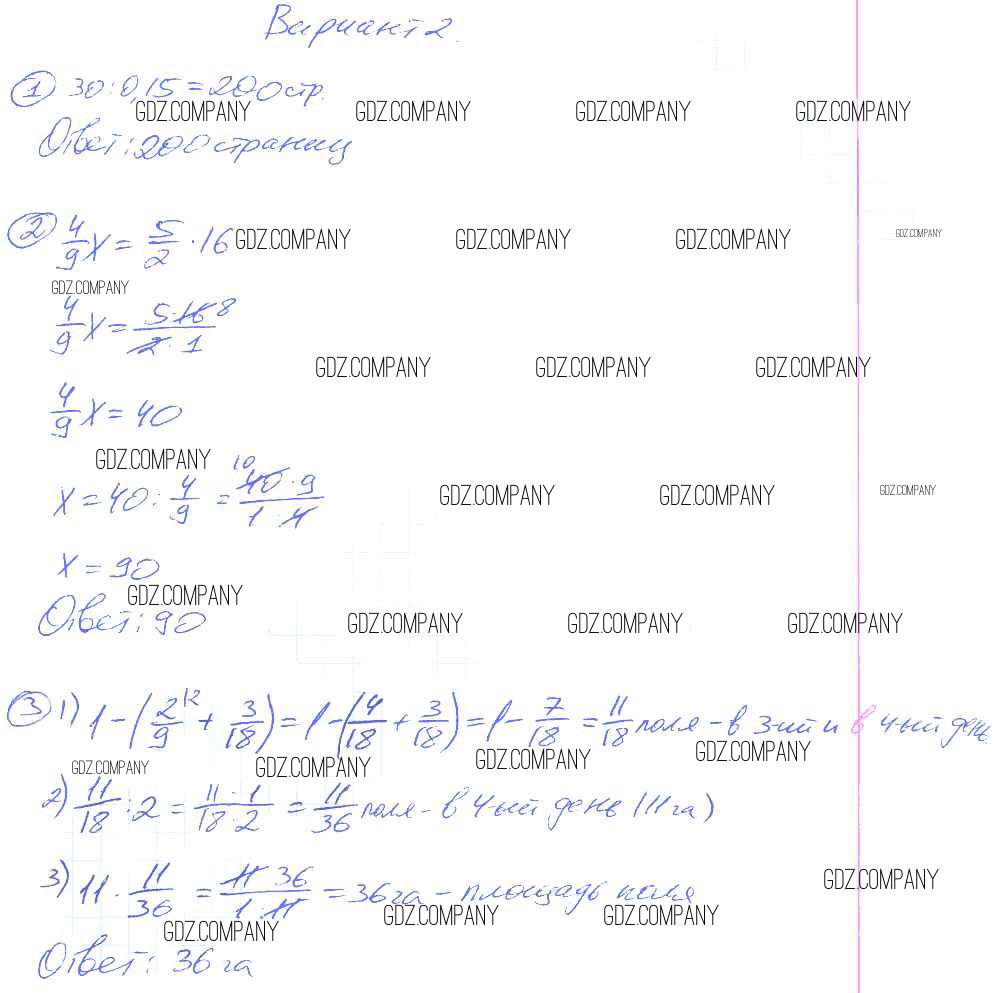 Вариант 2.
① 30 : 0,15 = 200 стр.
GDZ.COMPANY GDZ.COMPANY GDZ.COMPANY GDZ.COMPANY
Ответ: 200 страниц
② 4/9 X = 5/2 · 16
GDZ.COMPANY GDZ.COMPANY GDZ.COMPANY GDZ.COMPANY
GDZ.COMPANY
4/9 X = 5·16 8/2·1
GDZ.COMPANY GDZ.COMPANY GDZ.COMPANY
4/9 X = 40
GDZ.COMPANY
X = 40 : 4/9 = 10 40·9/1·4
GDZ.COMPANY GDZ.COMPANY GDZ.COMPANY
X = 90
GDZ.COMPANY
Ответ: 90
GDZ.COMPANY GDZ.COMPANY GDZ.COMPANY
③ 1) 1 - (2/9 \2 + 3/18) = 1 - (4/18 + 3/18) = 1 - 7/18 = 11/18 поля - в 3-ий и в 4-ый день
GDZ.COMPANY GDZ.COMPANY GDZ.COMPANY GDZ.COMPANY
2) 11/18 : 2 = 11·1/18·2 = 11/36 поля - в 4-ый день (11 га)
3) 11 · 11/36 = 11 36/1·11 = 36 га - площадь поля
GDZ.COMPANY
GDZ.COMPANY GDZ.COMPANY GDZ.COMPANY
Ответ: 36 га